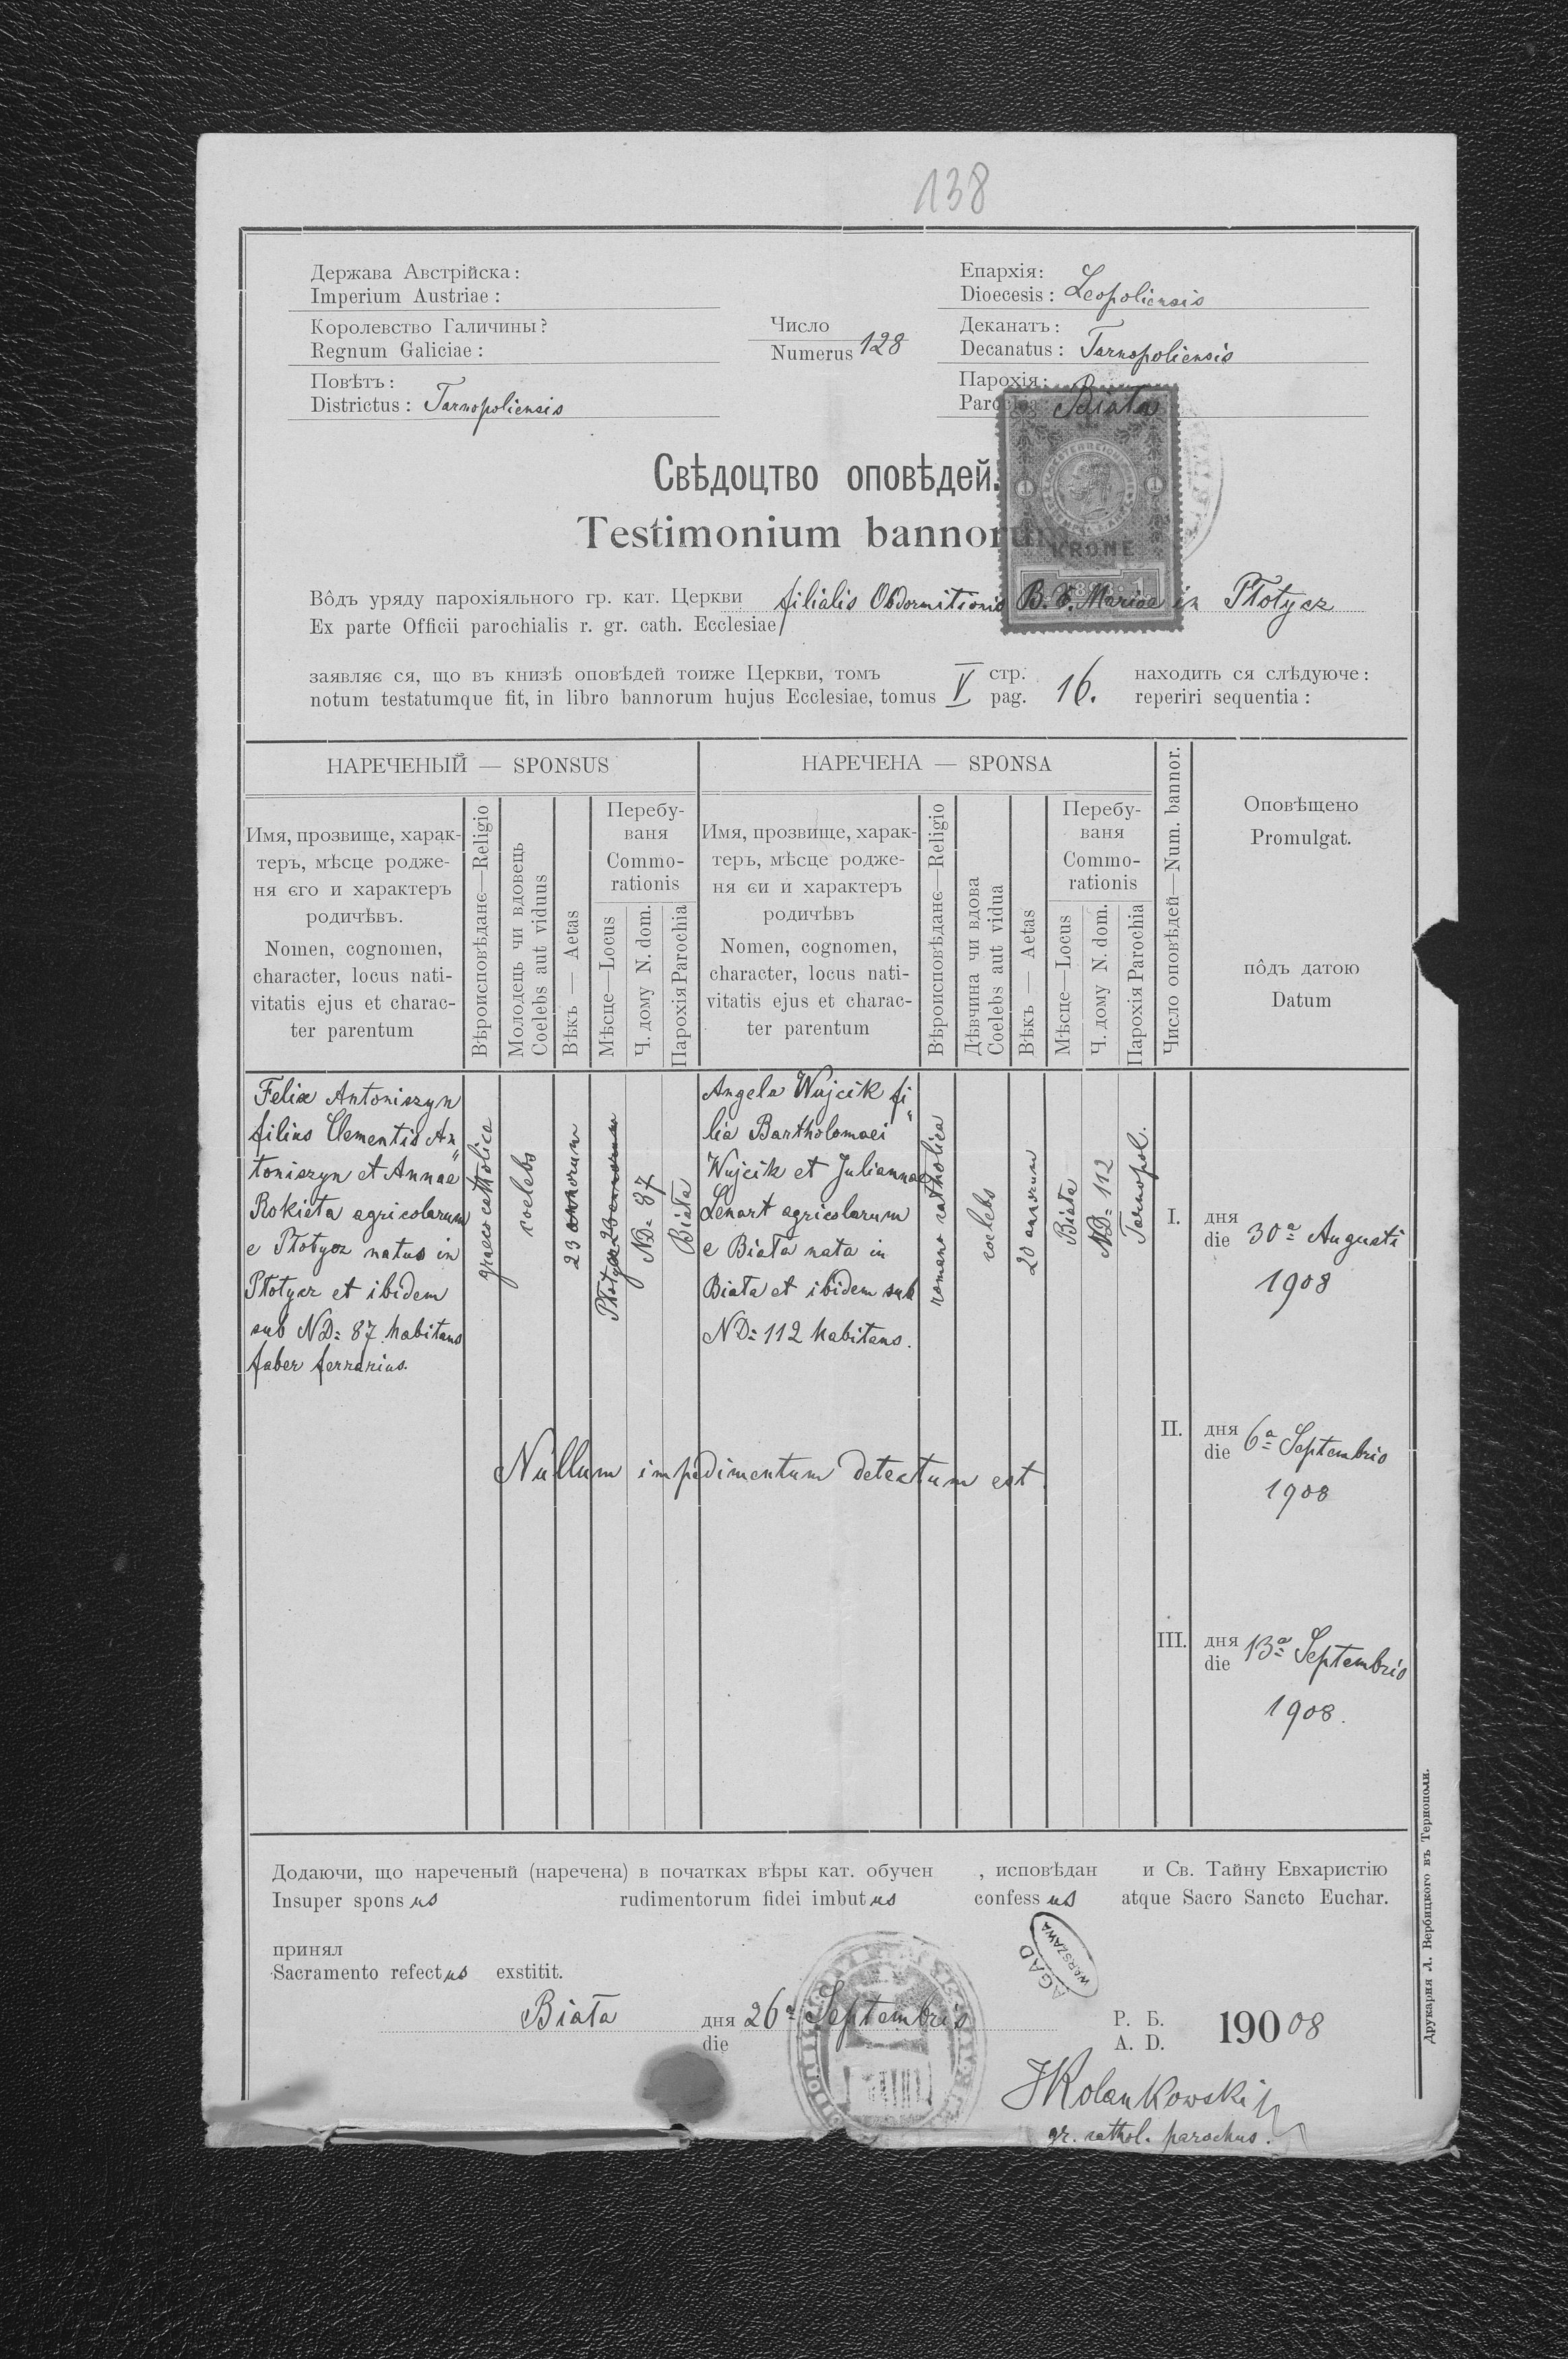 138
Держава Австрійска:
Imperium Austriae:
Королевство Галичины?
Regnum Galiciae:
Повѣтъ:
Districtus: Tarnopoliensis
Число
Numerus 128
Епархія:
Dioecesis: Leopoliensis
Деканатъ:
Decanatus: Tarnopoliensis
Парохія:
Biała
KRONE
1898
Свѣдоцтво оповѣдей.
Testimonium bannorum
Вôдъ уряду парохіяльного гр. кат. Церкви
Ex parte Officii parochialis r. gr. cath. Ecclesiae
filialis Obdormitionis B. V. Mariae in Płotycz
заявляє ся, що въ книзѣ оповѣдей тоиже Церкви, томъ V стр. 16. находить ся слѣдуюче:
notum testatumque fit, in libro bannorum hujus Ecclesiae, tomus pag. reperiri sequentia:
НАРЕЧЕНЫЙ — SPONSUS
Имя, прозвище, харак-
теръ, мѣсце родже-
ня єго и характеръ
родичѣвъ.
Nomen, cognomen,
character, locus nati-
vitatis ejus et charac-
ter parentum
Вѣроисповѣданє—Religio
Молодець чи вдовець
Coelebs aut viduus
Вѣкъ — Aetas
Перебу-
ваня
Commo-
rationis
Мѣсце—Locus
Ч. дому N. dom.
Парохія Parochia
НАРЕЧЕНА — SPONSA
Имя, прозвище, харак-
теръ, мѣсце родже-
ня єи и характеръ
родичѣвъ
Nomen, cognomen,
character, locus nati-
vitatis ejus et charac-
ter parentum
Вѣроисповѣданє—Religio
Дѣвчина чи вдова
Coelebs aut vidua
Вѣкъ — Aetas
Перебу-
ваня
Commo-
rationis
Мѣсце—Locus
Ч. дому N. dom.
Парохія Parochia
Число оповѣдей—Num. bannor.
Оповѣщено
Promulgat.
пôдъ датою
Datum
Felix Antoniszyn
filius Clementis An
toniszyn et Annae
Rokieta agricolarum
e Płotycz natus in
Płotycz et ibidem
sub ND: 87 habitans
faber ferrarius.
graeco catholica
coelebs
23 annorum
Płotycz
ND: 87
Biała
Angela Wujcik fi
lia Bartholomaei
Wujcik et Juliannae
Lenart agricolarum
e Biała nata in
Biała et ibidem sub
ND: 112 habitans.
romano catholica
coelebs
20 annorum
Biała
ND: 112
Tarnopol.
I. дня
die 30a Augusti
1908
II. дня
die 6a Septembris
1908
III. дня
die 13a Septembris
1908.
Nullum impedimentum detectum est.
Додаючи, що нареченый (наречена) в початках вѣры кат. обучен , исповѣдан и Св. Тайну Евхаристію
Insuper sponsus rudimentorum fidei imbutus confessus atque Sacro Sancto Euchar.
принял
Sacramento refectus exstitit.
AGAD
WARSZAWA
Biała дня 26a Septembris
die
Р. Б.
A. D. 19008
JKolankowski
gr. cathol. parochus.
Друкарня Л. Вербицкого въ Тернополи.